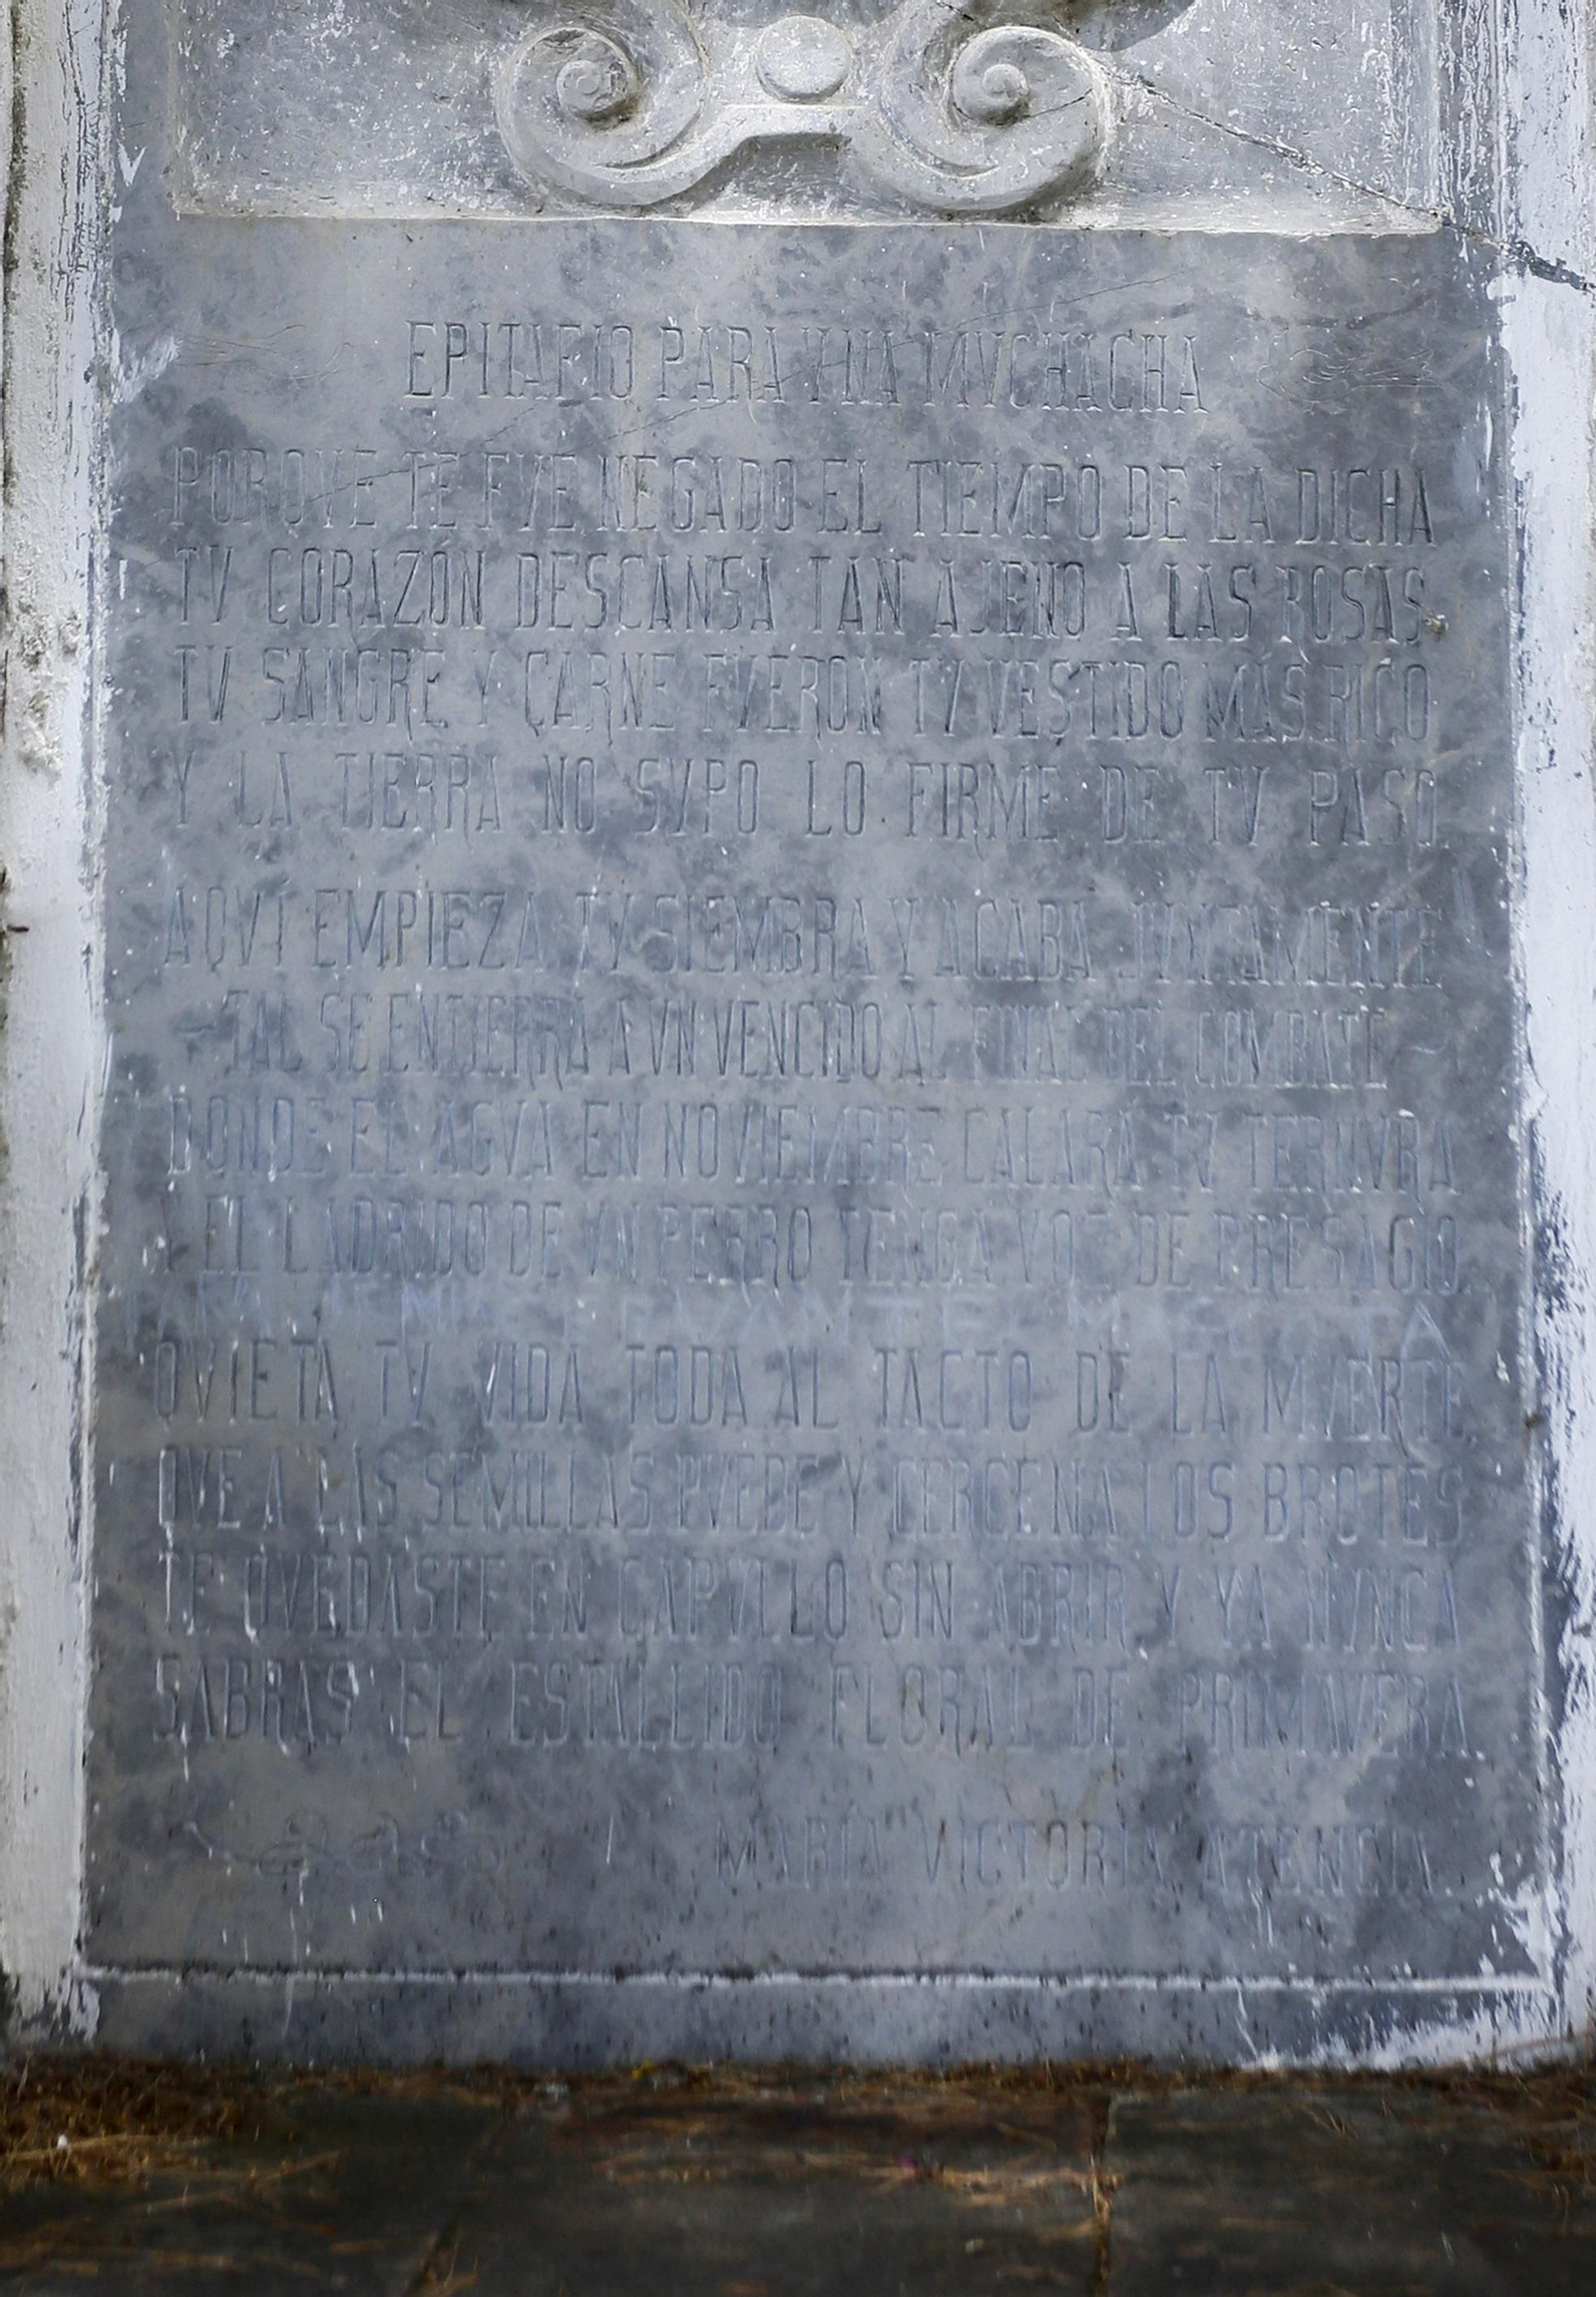 EPITAFIO PARA VNA MVCHACHA
PORQVE TE FVE NEGADO EL TIEMPO DE LA DICHA
TV CORAZÓN DESCANSA TAN AJENO A LAS ROSAS.
TV SANGRE Y CARNE FVERON TV VESTIDO MÁS RICO
Y LA TIERRA NO SVPO LO FIRME DE TV PASO.
AQVÍ EMPIEZA TV SIEMBRA Y ACABA JVNTAMENTE
~ TAL SE ENTIERRA A VN VENCIDO AL FINAL DEL COMBATE ~
DONDE EL AGVA EN NOVIEMBRE CALARÁ TV TERNVRA
Y EL LADRIDO DE VN PERRO TENGA VOZ DE PRESAGIO.
QVIETA TV VIDA TODA AL TACTO DE LA MVERTE,
QVE A LAS SEMILLAS PVEDE Y CERCENA LOS BROTES,
TE QVEDASTE EN CAPVLLO SIN ABRIR, Y YA NVNCA
SABRÁS EL ESTALLIDO FLORAL DE PRIMAVERA.
MARÍA VICTORIA ATENCIA.